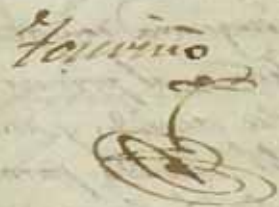 Touriño